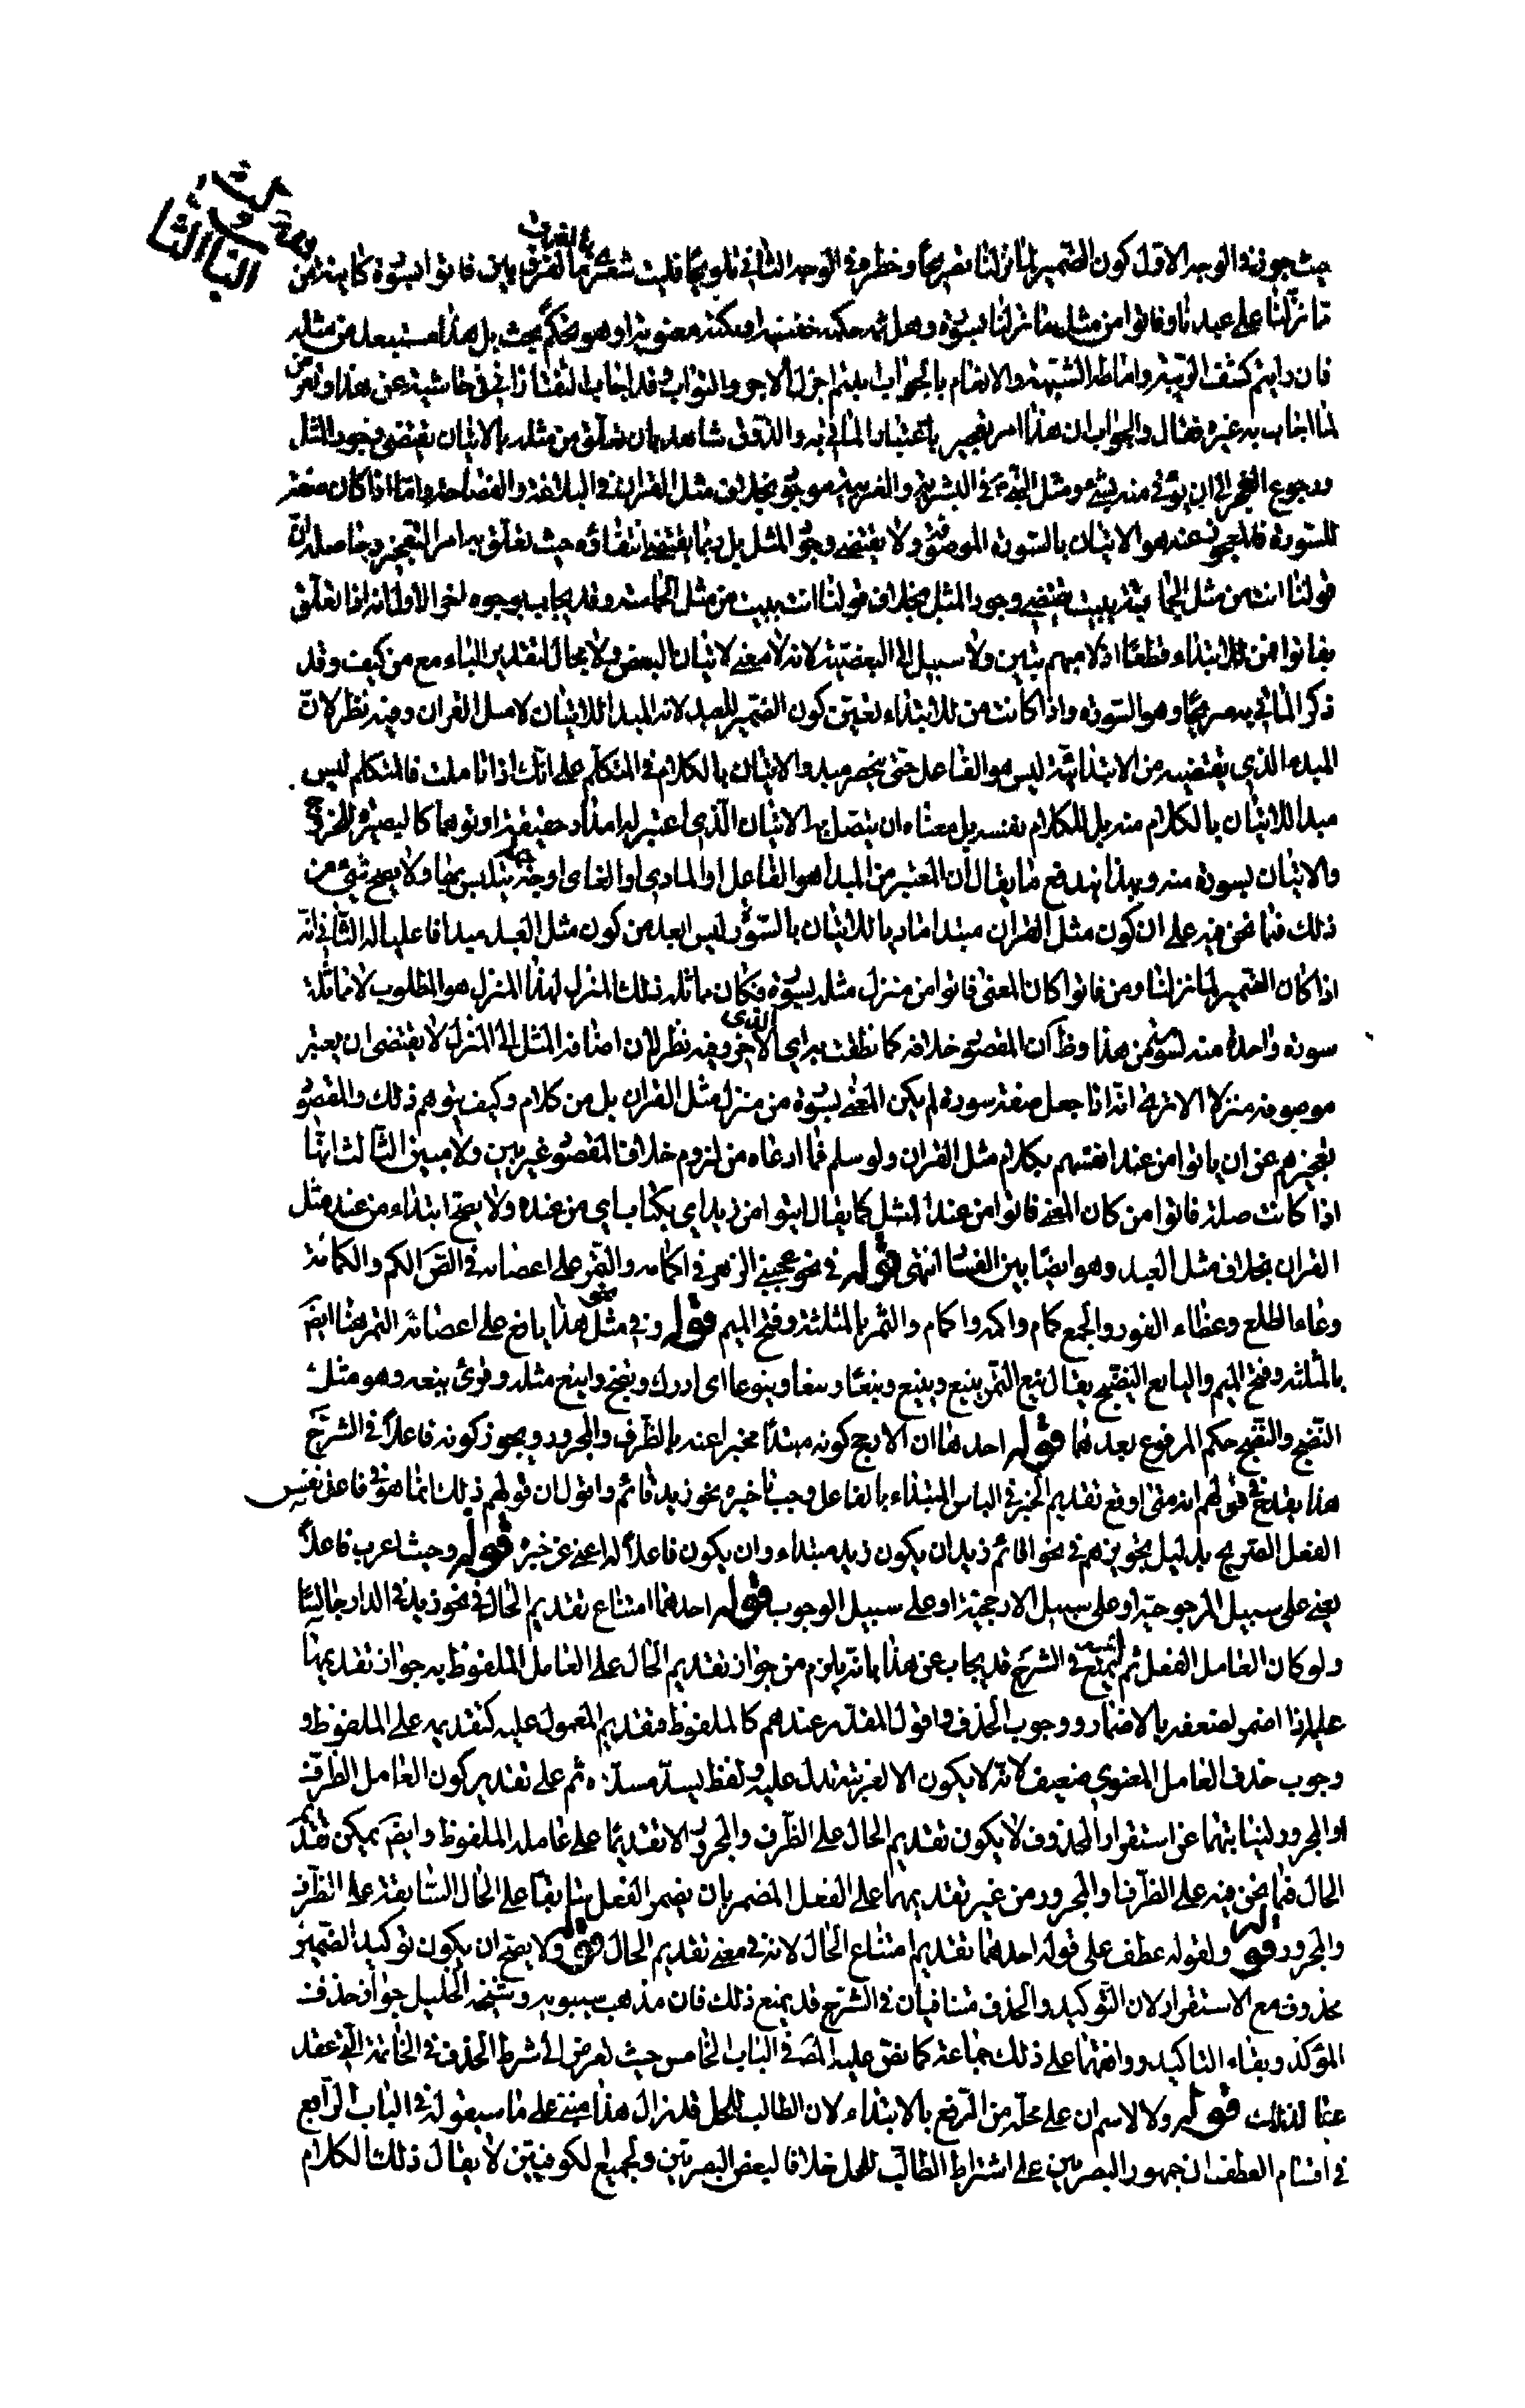 حيث جوز في الوجه الاول كون الضمير لما نزلنا تصريحا وخطره في الوجه الثاني تلويحا فليت شعري ما الفرق بين فاتوا بسورة كاينة من
مما نزلنا على عبدنا وفاتوا من مثل ما نزلنا بسورة وهل ثمه حكمة خفية او نكتة معنوية او هو تحكم بحت بل هذا مستبعد من مثله
فان رايتم كشف الريبة واماطة الشبهة والانعام بالجواب اثبتم اجزل الاجر والثواب وقد اجاب التفتازاني في حاشيته عن هذا وتعرض
لما اجاب به غيره فقال والجواب ان هذا امر تعجيز باعتبار الماتي به والذوق شاهد بان تعلق من مثله بالاتيان يقتضي وجود المثل
ورجوع العجز الى ان يوتى منه بشيء ومثل النبي في البشرية والعربية موجود بخلاف مثل القران في البلاغة والفصاحة واما اذا كان صفة
للسورة فالمعجوز عنه هو الاتيان بالسورة الموصوفة ولا يقتضي وجود المثل بل ربما يقتضي انتفاؤه حيث تعلق به امر التعجيز وحاصله ان
قولنا ائت من مثل الحماسة ببيت يقتضي وجود المثل بخلاف قولنا ائت ببيت من مثل الحماسة وقد يجاب بوجوه اخر الاول انه اذا تعلق
بفاتوا فمن للابتداء قطعا اذ لا مبهم يتبين ولا سبيل الى البعضية لانه لا معنى لاتيان البعض ولا مجال لتقدير الباء مع من كيف وقد
ذكر الماتي به صريحا وهو السورة واذا كانت من للابتداء تعين كون الضمير للعبد لانه المبدأ للاتيان لا مثل القران وفيه نظر لان
المبدء الذي يقتضيه من الابتدائية ليس هو الفاعل حتى ينحصر مبدء الاتيان بالكلام في المتكلم على انك اذا تاملت فالمتكلم ليس
مبدا للاتيان بالكلام منه بل للكلام نفسه بل معناه ان يتصل به الاتيان الذي اعتبر له امتداد حقيقة او توهما كالبصرة للخروج
والاتيان بسورة منه وبهذا يندفع ما يقال ان المعتبر من المبدا هو الفاعل او المادي او الغاى او جهة يتلبس بها ولا يصح شيء من
ذلك فيما نحن فيه على ان كون مثل القران مبتدا ماديا للاتيان بالسورة ليس ابعد من كون مثل العبد مبدا فاعليا له الثاني انه
اذا كان الضمير لما نزلنا ومن فاتوا كان المعنى فاتوا من منزل مثله بسورة فكان مماثلة ذلك المنزل لهذا المنزل هو المطلوب لا مماثلة
سورة واحدة منه لسورة من هذا وظ ان المقصود خلافه كما نطقت به الاي الاخر وفيه نظر لان اضافة المثل الى المنزل لا يقتضى ان يعتبر
موصوفه منزلا الا ترى انه اذا جعل صفة سورة لم يكن المعنى بسورة من منزل مثل القران بل من كلام وكيف يتوهم ذلك والمقصود
تعجيزهم عن ان ياتوا من عند انفسهم بكلام مثل القران ولو سلم فما ادعاه من لزوم خلاف المقصود غير بين ولا مبين الثالث انها
اذا كانت صلة فاتوا من كان المعنى فاتوا من عند المثل كما يقال ايتوا من زيد اي بكتاب اي من عنده ولا يصح ابتداء من عند مثل
القران بخلاف مثل العبد وهو ايضا بين الفساد انتهى قوله في نحو يعجبني الزهر في اكمامه والثمر على اغصانه في القس الكم والكمامة
وعاء الطلع وغطاء النور والجمع كمام واكمه واكمام والثمر بالمثلثة وفتح الميم قوله وفي مثل هذا يانع على اغصانه الثمر هنا ايضا
بالمثلثه وفتح الميم واليانع النضيج يقال ينع الثمر يينع ويينع وينعا وينعا وينوعا اي ادرك ونضج واينع مثله وقرئ ينعه وهو مثل
النضج والنضج حكم المرفوع بعدهما قوله احدهما ان الارجح كونه مبتدأ مخبرا عنه بالظرف والمجرور ويجوز كونه فاعلا في الشرح
هذا يقدح في قولهم انه متى اوقع تقديم الخبر في الباس المبتداء بالفاعل وجب تاخيره نحو زيد قائم واقول ان قولهم ذلك انما هو في فاعل نفس
الفعل الصريح بدليل تجويزهم في نحو اقائم زيد ان يكون زيد مبتداء وان يكون فاعلا له اغنى عن خبره قوله وحيث اعرب فاعلا
يعني على سبيل المرجوحية او على سبيل الارجحية او على سبيل الوجوب قوله احدهما امتناع تقديم الحال في نحو زيد في الدار جالسا
ولو كان العامل الفعل لم يمتنع في الشرح قد يجاب عن هذا بانه يلزم من جواز تقديم الحال على العامل الملفوظ به جواز تقديمها
عليه اذا اضمر لضعفه بالاضمار ووجوب الحذف واقول المقدر عندهم كالملفوظ فتقديم المعمول عليه كتقديمه على الملفوظ و
وجوب حذف العامل المعنوي ضعيف لانه لا يكون الا لقرينة تدل عليه ولفظ يسد مسده ثم على تقدير كون العامل الظرف
او المجرور لنيابتهما عن استقر او المحذوف لا يكون تقديم الحال على الظرف والمجرور الا تقديما على عامله الملفوظ وايضا يمكن تقديم
الحال فيما نحن فيه على الظرف او المجرور من غير تقديمها على الفعل المضمر بان يضمر الفعل سابقا على الحال السابقة على الظرف
والمجرور قوله ولقوله عطف على قوله احدهما تقديم امتناع الحال لانه في معنى تقديم الحال قوله ولا يصح ان يكون توكيدا لضمير
محذوف مع الاستقرار لان التوكيد والحذف متنافيان في الشرح قد يمنع ذلك فان مذهب سيبويه وشيخه الخليل جواز حذف
المؤكد وبقاء التاكيد ووافقهما على ذلك جماعة كما نص عليه المصنف في الباب الخامس حيث تعرض الى شرط الحذف في الخاتمة التي عقد
عنا لذلك قوله ولا لاسم ان على محله من الرفع بالابتداء لان الطالب للمحل قد زال هذا مبني على ما سيقوله في الباب الرابع
في اقسام العطف ان جمهور البصريين على اشتراط الطالب للمحل خلافا لبعض البصريين ولجميع الكوفيين لا يقال ذلك الكلام